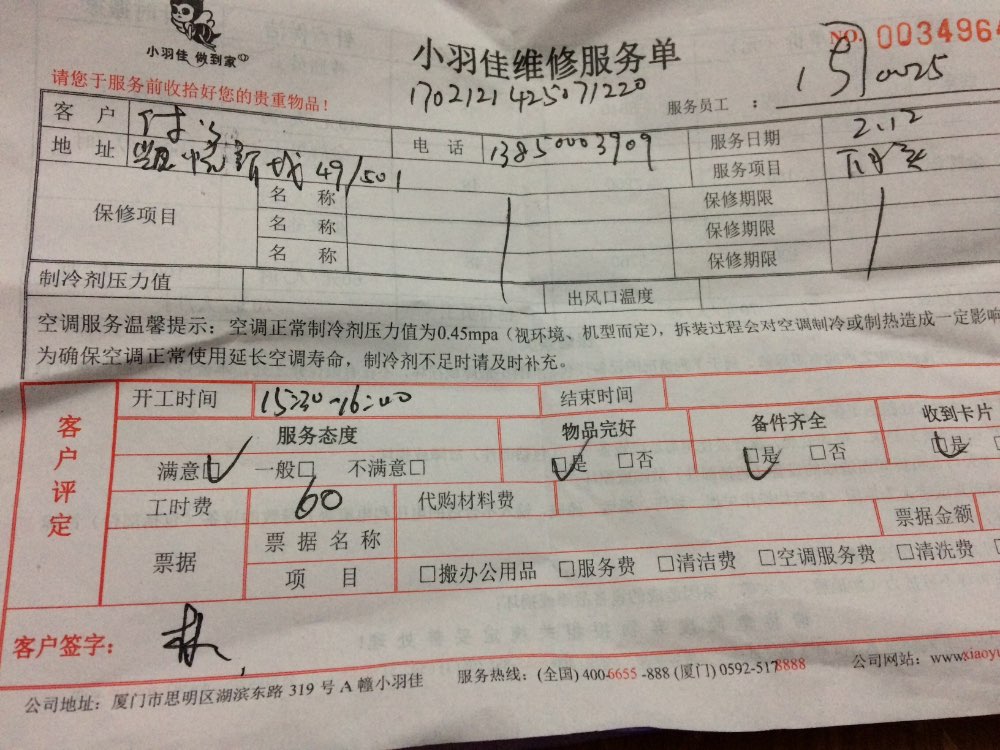 小羽佳 做到家
小羽佳维修服务单
NO. 0034964
请您于服务前收拾好您的贵重物品！
1702121425071220
服务员工：
0025
客户
电话 13850003909
服务日期 2.12
地址 新城49/501
服务项目
保修项目
名称 保修期限
名称 保修期限
名称 保修期限
制冷剂压力值 出风口温度
空调服务温馨提示：空调正常制冷剂压力值为0.45mpa（视环境、机型而定），拆装过程会对空调制冷或制热造成一定影响
为确保空调正常使用延长空调寿命，制冷剂不足时请及时补充。
客户评定
开工时间 15:30~16:00 结束时间
服务态度 物品完好 备件齐全 收到卡片
满意□ 一般□ 不满意□ □是 □否 □是 □否 □是
工时费 60 代购材料费
票据 票据名称 票据金额
项目 □搬办公用品 □服务费 □清洁费 □空调服务费 □清洗费
客户签字： 林
公司地址：厦门市思明区湖滨东路 319 号 A 幢小羽佳 服务热线：(全国) 400-6655-888 (厦门) 0592-5178888 公司网站：www.xiaoyu